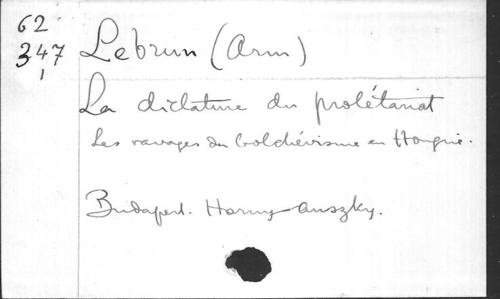 62
347
1
Lebrun (Arm)
La dictature du prolétariat
Les ravages du bolchévisme en Hongrie.
Budapest. Hornyanszky.